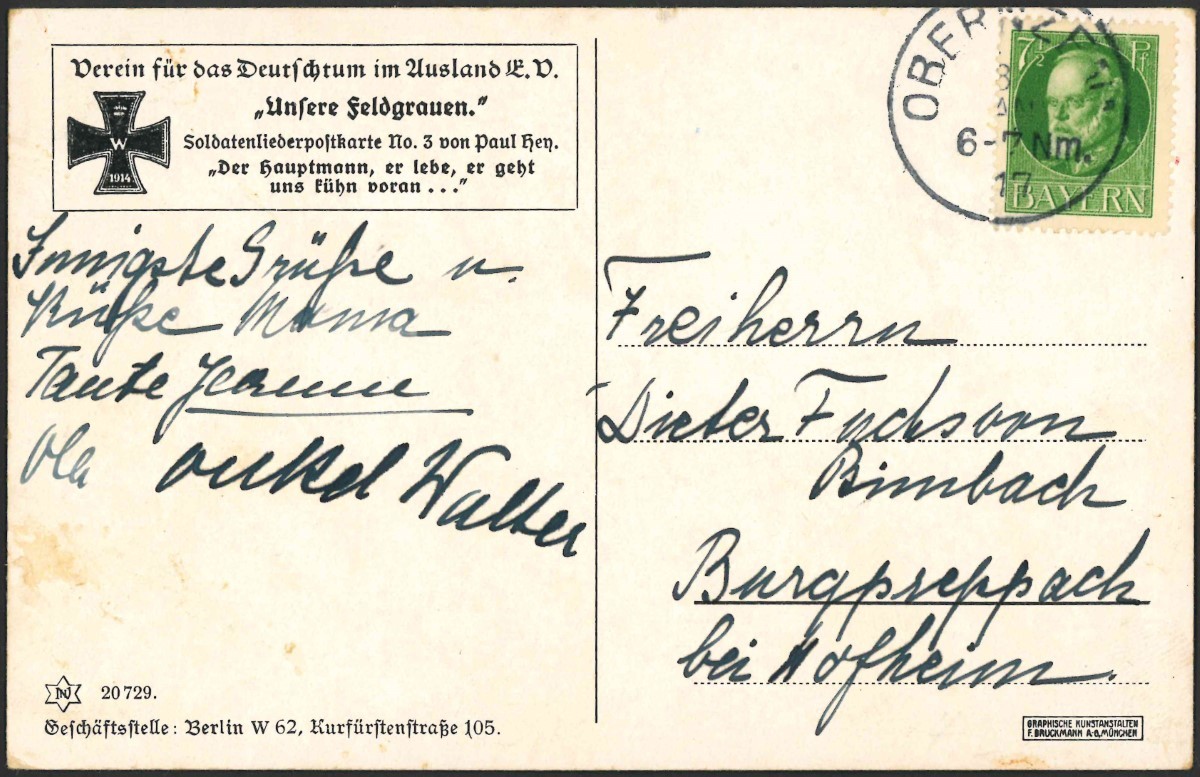 Verein für das Deutschtum im Ausland E.V.
„Unsere Feldgrauen."
Soldatenliederpostkarte No. 3 von Paul Hey.
„Der Hauptmann, er lebe, er geht
uns kühn voran ..."
W
1914
Innigste Grüße u.
Küße Mama
Tante Jeanne
Ola
onkel Walter
7½ Pf
BAYERN
6-7 Nm.
17
Freiherrn
Dieter Fuchs von
Bimbach
Burgpreppach
bei Hofheim.
20729.
Geschäftsstelle: Berlin W 62, Kurfürstenstraße 105.
GRAPHISCHE KUNSTANSTALTEN
F. BRUCKMANN A-G, MÜNCHEN